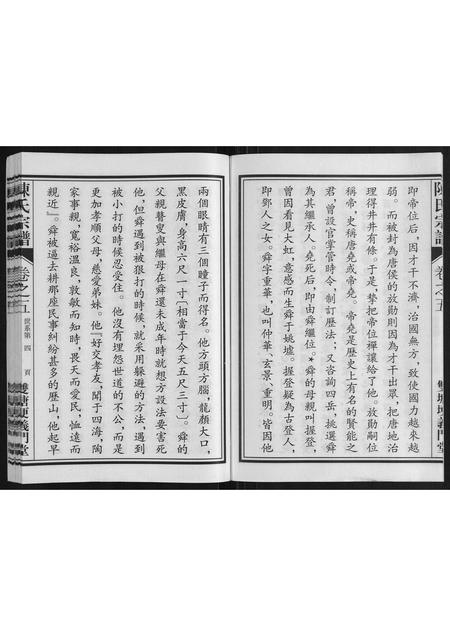 陳氏宗譜
卷之五
雙塘坳義門堂
即帝位后，因才干不濟，治國無方，致使國力越來越
弱。而被封為唐侯的放勛則因為才干出眾，把唐地治
理得井井有條。于是，摯把帝位禪讓給了他。放勛嗣位
稱帝，史稱唐堯或帝堯。帝堯是歷史上有名的賢能之
君，曾設官掌管時令，制訂歷法，又咨詢四岳，挑選舜
為其繼承人。堯死后，即由舜繼位。★舜的母親叫握登，
曾因看見大虹，意感而生舜于姚墟。握登疑為古登人，
即鄧人之女。舜字重華，也叫仲華、玄景、重明。皆因他
兩個眼睛有三個瞳子而得名。他方頭方腦，龍顏大口，
黑皮膚，身高六尺一寸（相當于今天五尺三寸）。舜的
父親瞽叟與繼母在舜還未成年時就想方設法要害死
他，但舜遇到被狠打的時候，就采用躲避的方法，遇到
被小打的時候忍受住。他沒有埋怨世道的不公，而是
更加孝順父母，慈愛弟妹。他『好交孝友，聞于四海，陶
家事親，寬裕溫良，敦敏而知時，畏天而愛民，恤遠而
親近』。舜被過去耕那座民事糾紛甚多的歷山，他起早
陳氏宗譜
卷之五
世系第四頁
雙塘坳義門堂